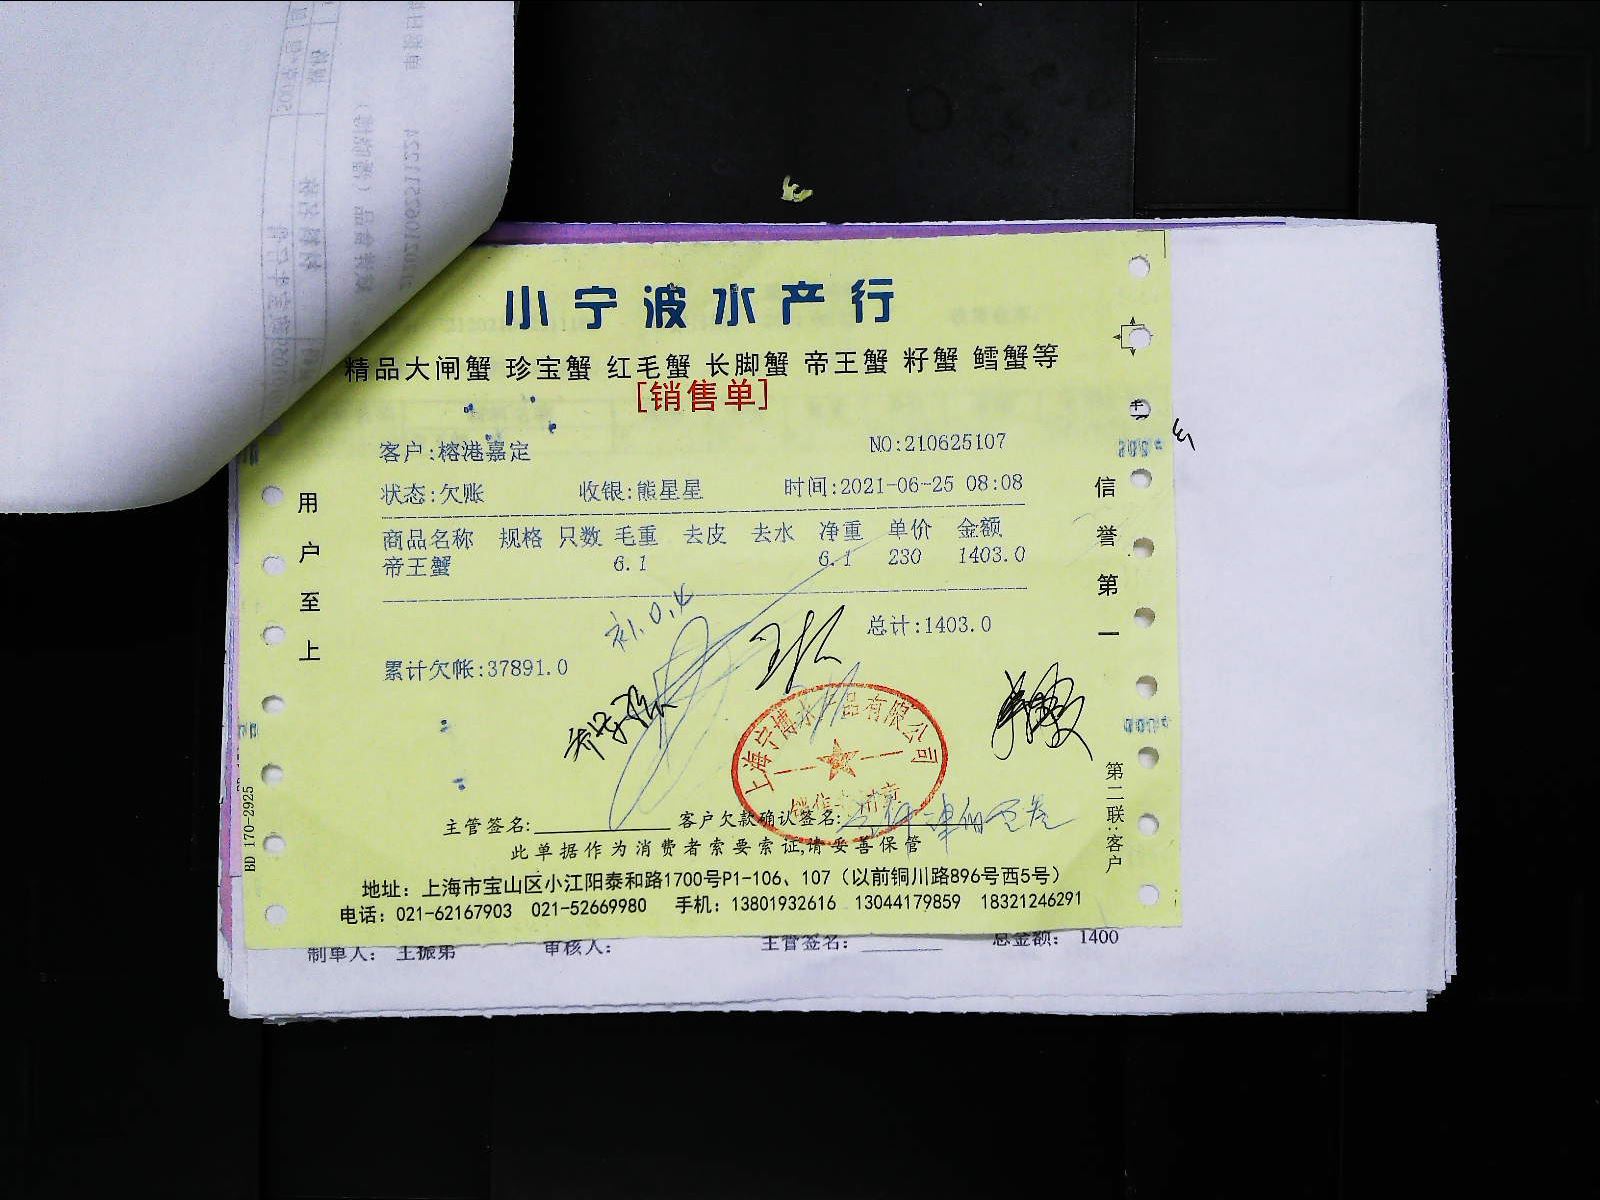 小宁波水产行
精品大闸蟹 珍宝蟹 红毛蟹 长脚蟹 帝王蟹 籽蟹 鳕蟹等
[销售单]
客户:榕港嘉定 NO:210625107
状态:欠账 收银:熊星星 时间:2021-06-25 08:08
商品名称 规格 只数 毛重 去皮 去水 净重 单价 金额
帝王蟹 6.1 6.1 230 1403.0
总计:1403.0
累计欠帐:37891.0
用户至上
信誉第一
上海宁博水产品有限公司
主管签名: 客户欠款确认签名:
此单据作为消费者索要索证,请妥善保管
地址：上海市宝山区小江阳泰和路1700号P1-106、107（以前铜川路896号西5号）
电话：021-62167903 021-52669980 手机：13801932616 13044179859 18321246291
第二联:客户
BD 170-2925
制单人： 王振弟 审核人： 主管签名： 总金额： 1400